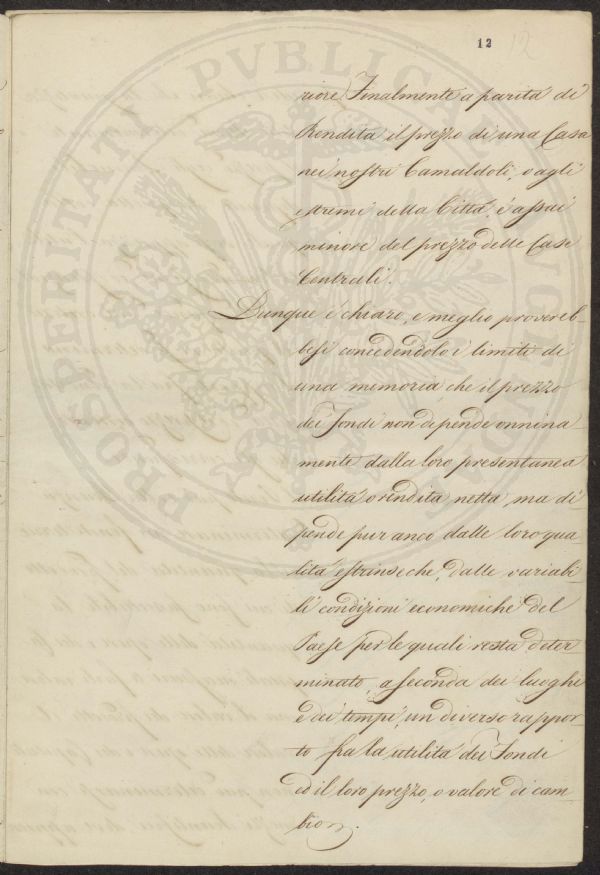 12 12
riore. Finalmente a parità di
Rendita il prezzo di una Casa
nei nostri Camaldoli, o agli
estremi della Città, é assai
minore del prezzo delle Case
Centrali.
Dunque é chiaro, e meglio provereb-
besi concedendolo i limiti di
una memoria che il prezzo
dei Fondi non dipende onnina
mente dalla loro presentanea
utilità o rendita netta, ma di
pende pur anco dalle loro qua
lità estrinseche, dalle variabi
li condizioni economiche del
Paese per le quali resta deter
minato, a seconda dei luoghi
e dei tempi, un diverso rappor-
to fra la utilità dei Fondi
ed il loro prezzo, o valore di cam-
bio.
PROSPERITATI PVBLICAE AVGENDAE